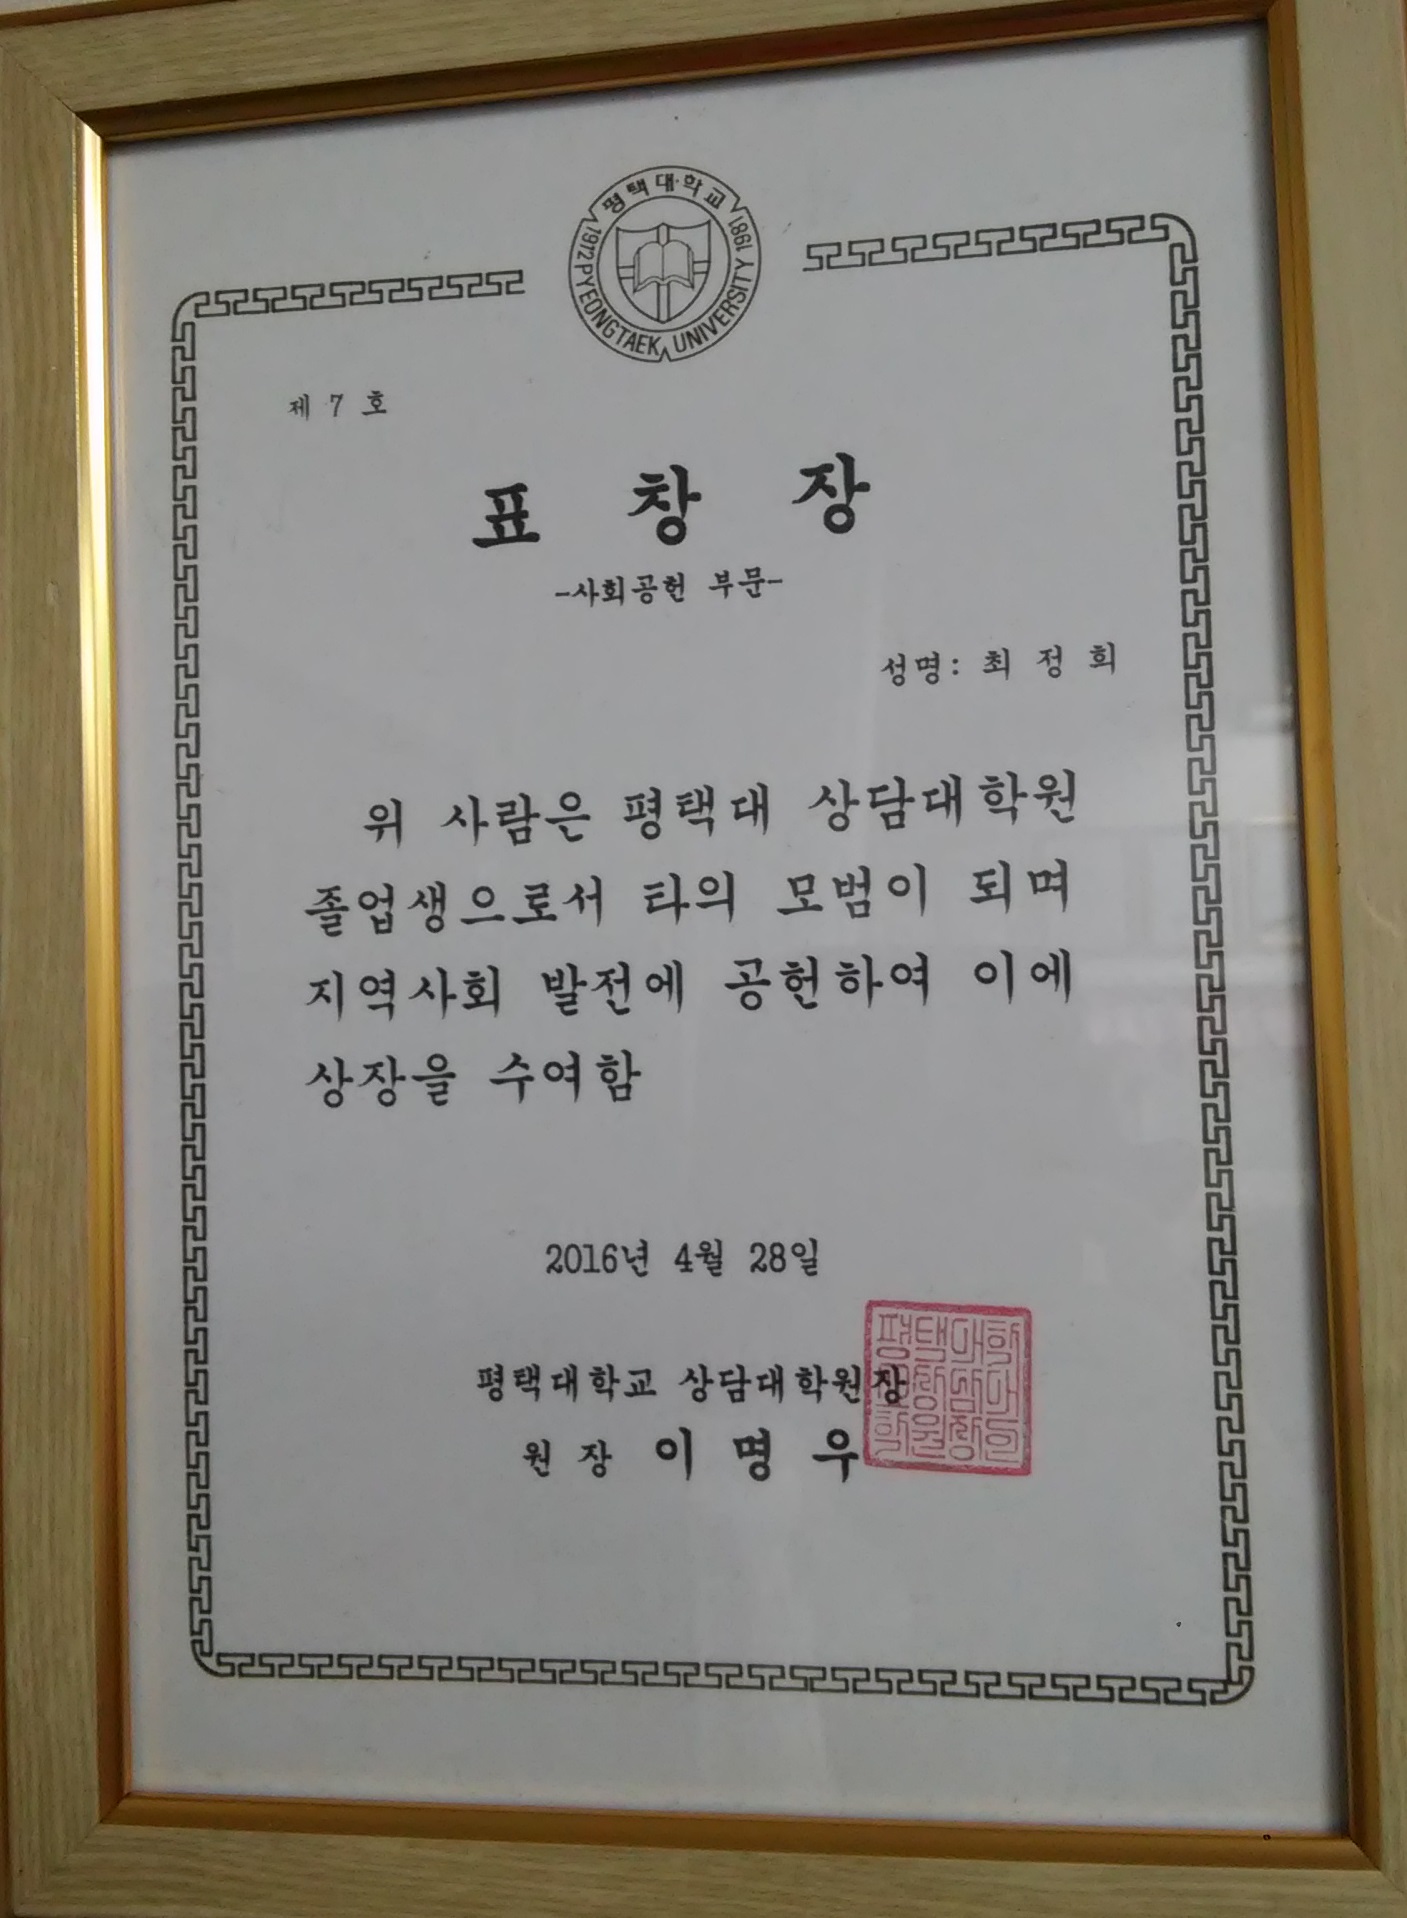 평택대학교
1972 PYEONGTAEK UNIVERSITY 1981
제 7 호
표 창 장
-사회공헌 부문-
성명: 최 정 희
위 사람은 평택대 상담대학원
졸업생으로서 타의 모범이 되며
지역사회 발전에 공헌하여 이에
상장을 수여함
2016년 4월 28일
평택대학교 상담대학원장
원 장 이 명 우